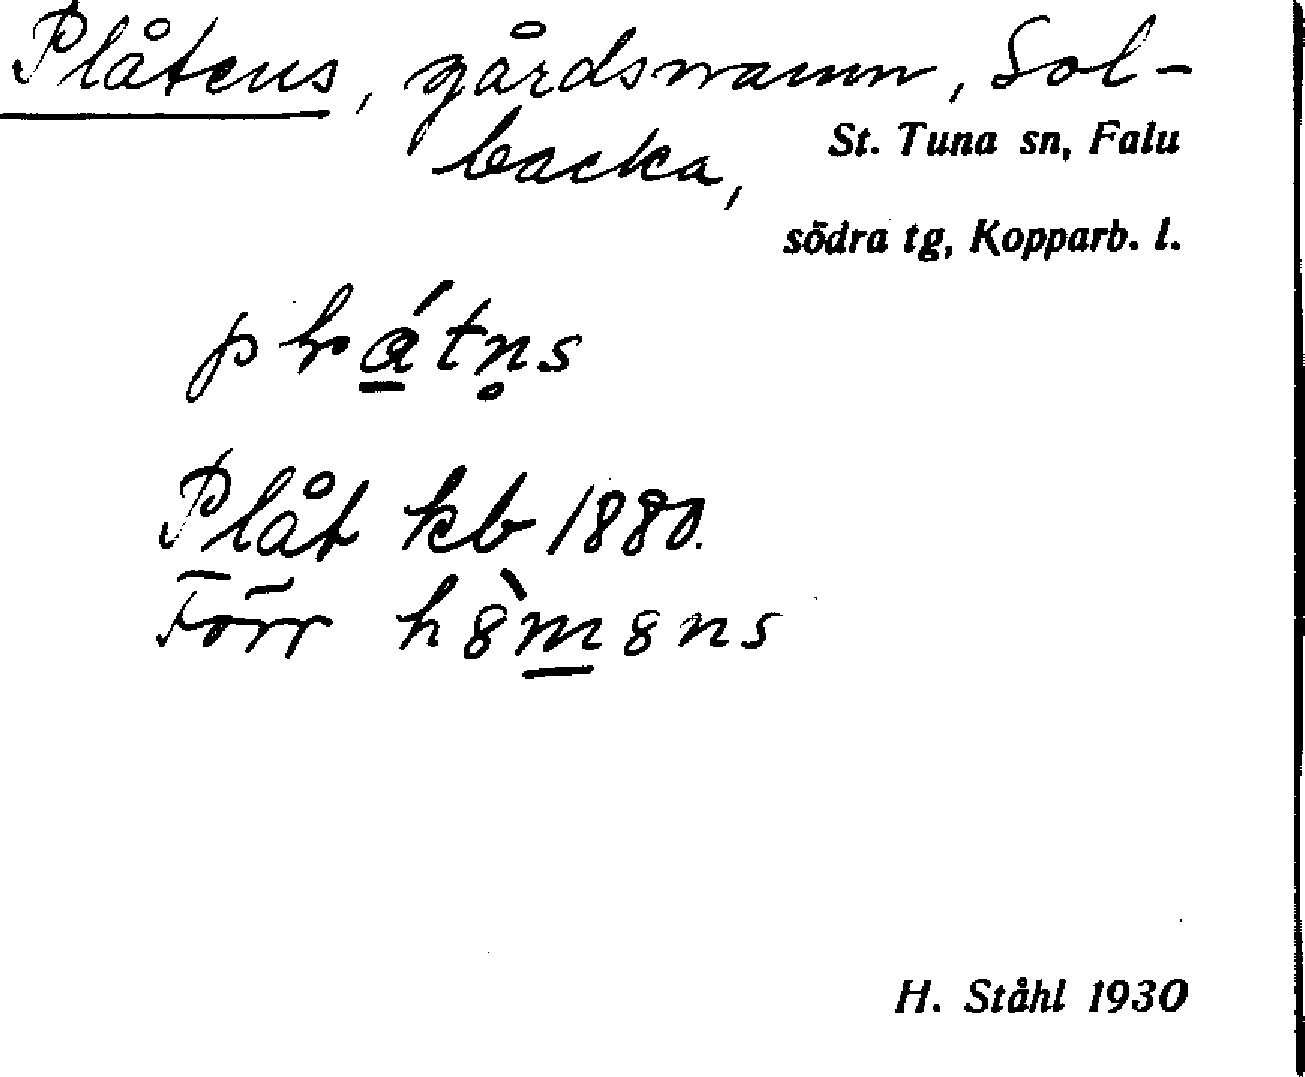 Plåtens, gårdsnamn, Sol-
backa,
St. Tuna sn, Falu
södra tg, Kopparb. l.
Plåt kb 1880.
Förr
H. Ståhl 1930